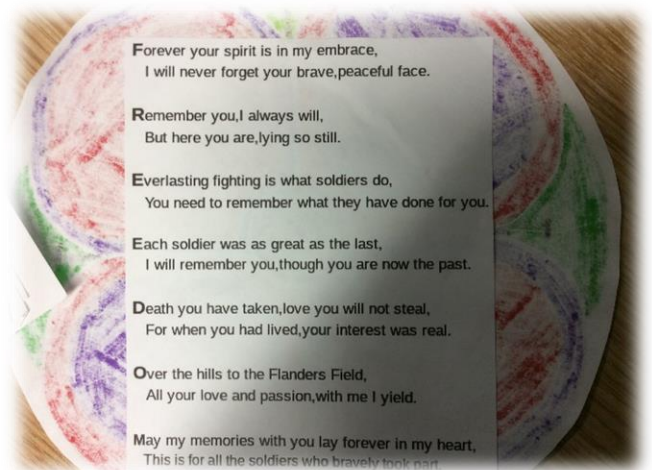 Forever your spirit is in my embrace,
I will never forget your brave,peaceful face.
Remember you,I always will,
But here you are,lying so still.
Everlasting fighting is what soldiers do,
You need to remember what they have done for you.
Each soldier was as great as the last,
I will remember you,though you are now the past.
Death you have taken,love you will not steal,
For when you had lived,your interest was real.
Over the hills to the Flanders Field,
All your love and passion,with me I yield.
May my memories with you lay forever in my heart,
This is for all the soldiers who bravely took part.